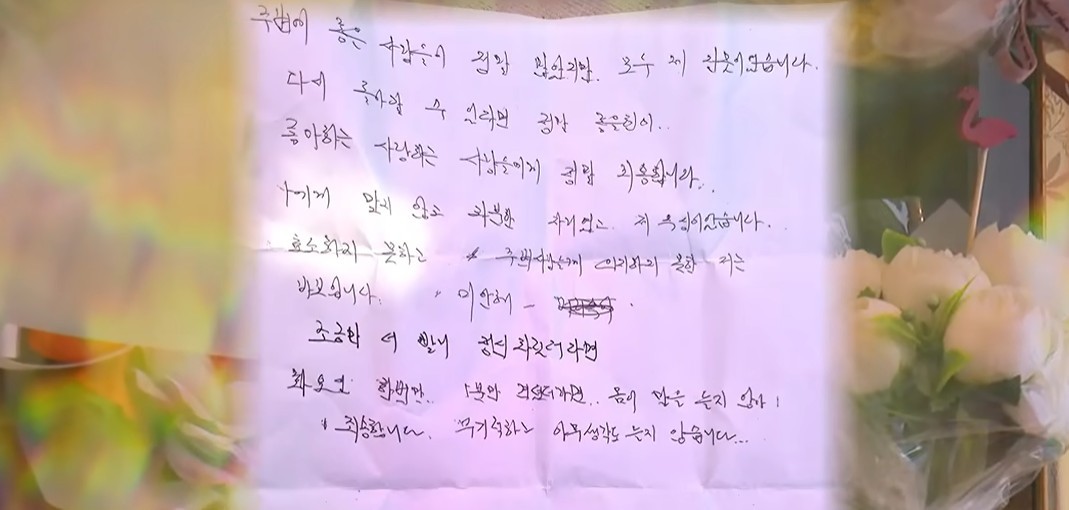 주변에 좋은 사람들이 정말 많았지만. 모두 제 잘못이었습니다.
다시 돌아갈 수 있다면 정말 좋을텐데..
좋아하는 사랑하는 사람들에게 정말 죄송합니다.
맞지 않고 과분한 자리였고. 제 욕심이었습니다.
호소하지 못하고 주변사람들에게 의지하지 못한 저는
바보입니다. 미안해 -
조금만 더 빨리 정신 차렸더라면
한번만.. 1분만 .. 몸이 말을 듣지 않아
죄송합니다. 무기력하고 아무생각도 듣지 않습니다...